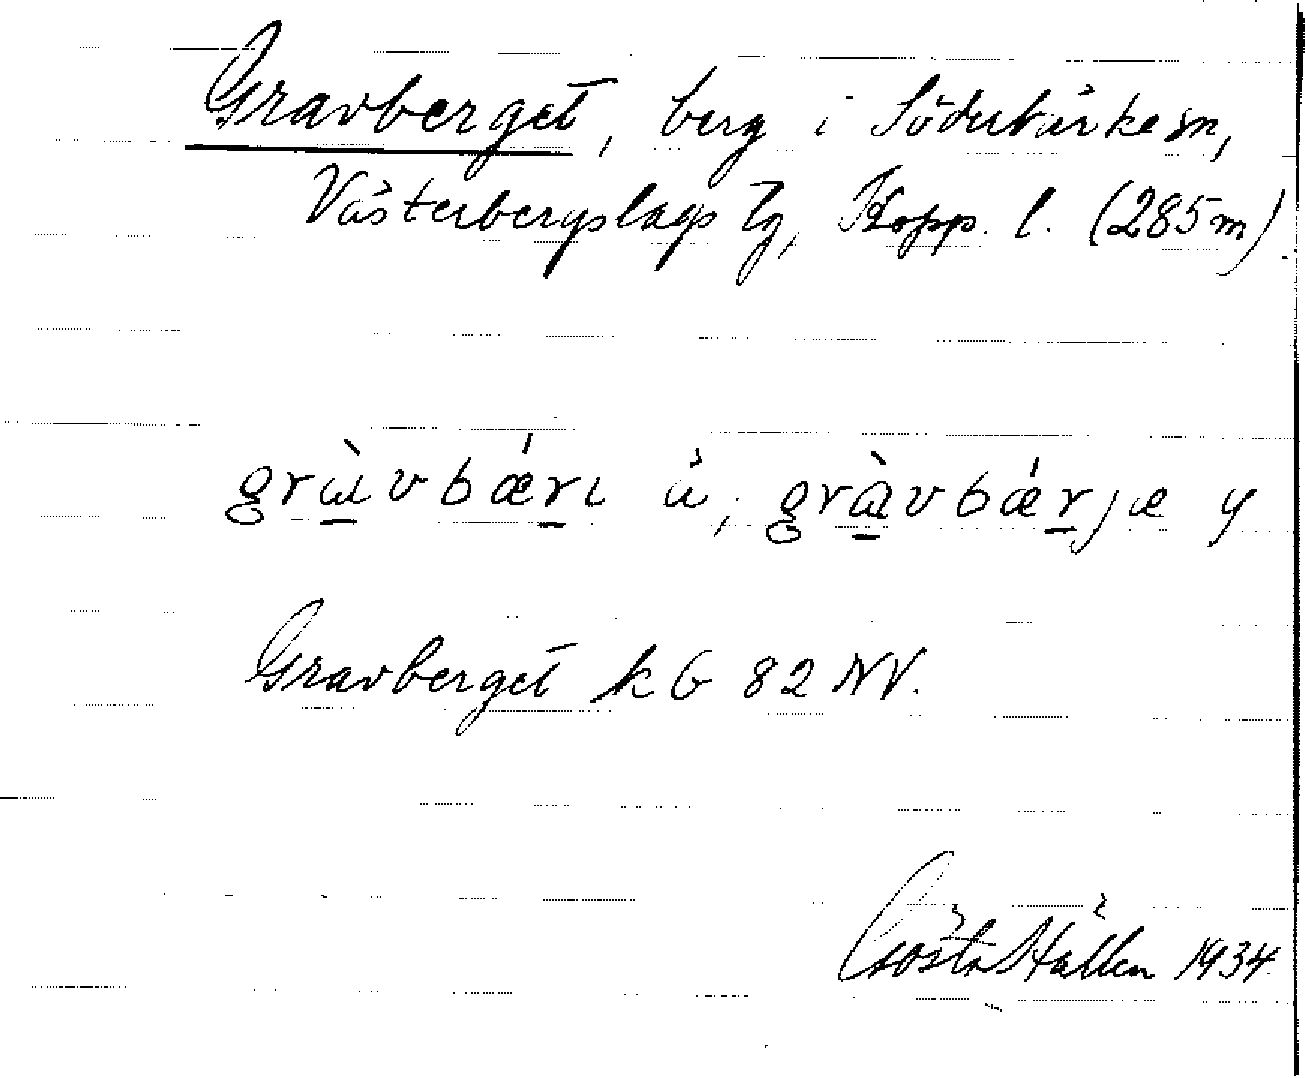 Gravberget, berg i Söderbärke sn,
Västerbergslags tg, Kopp. l. (285 m).
gràvbǽrı ä, gràvbǽrjæ y
Gravberget k G 82 NV.
Gösta Hällen 1934